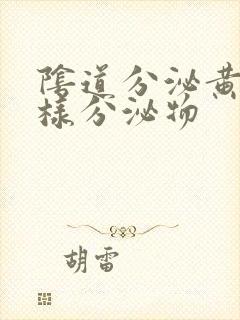 陰道分泌黄
樣分泌物
胡雷